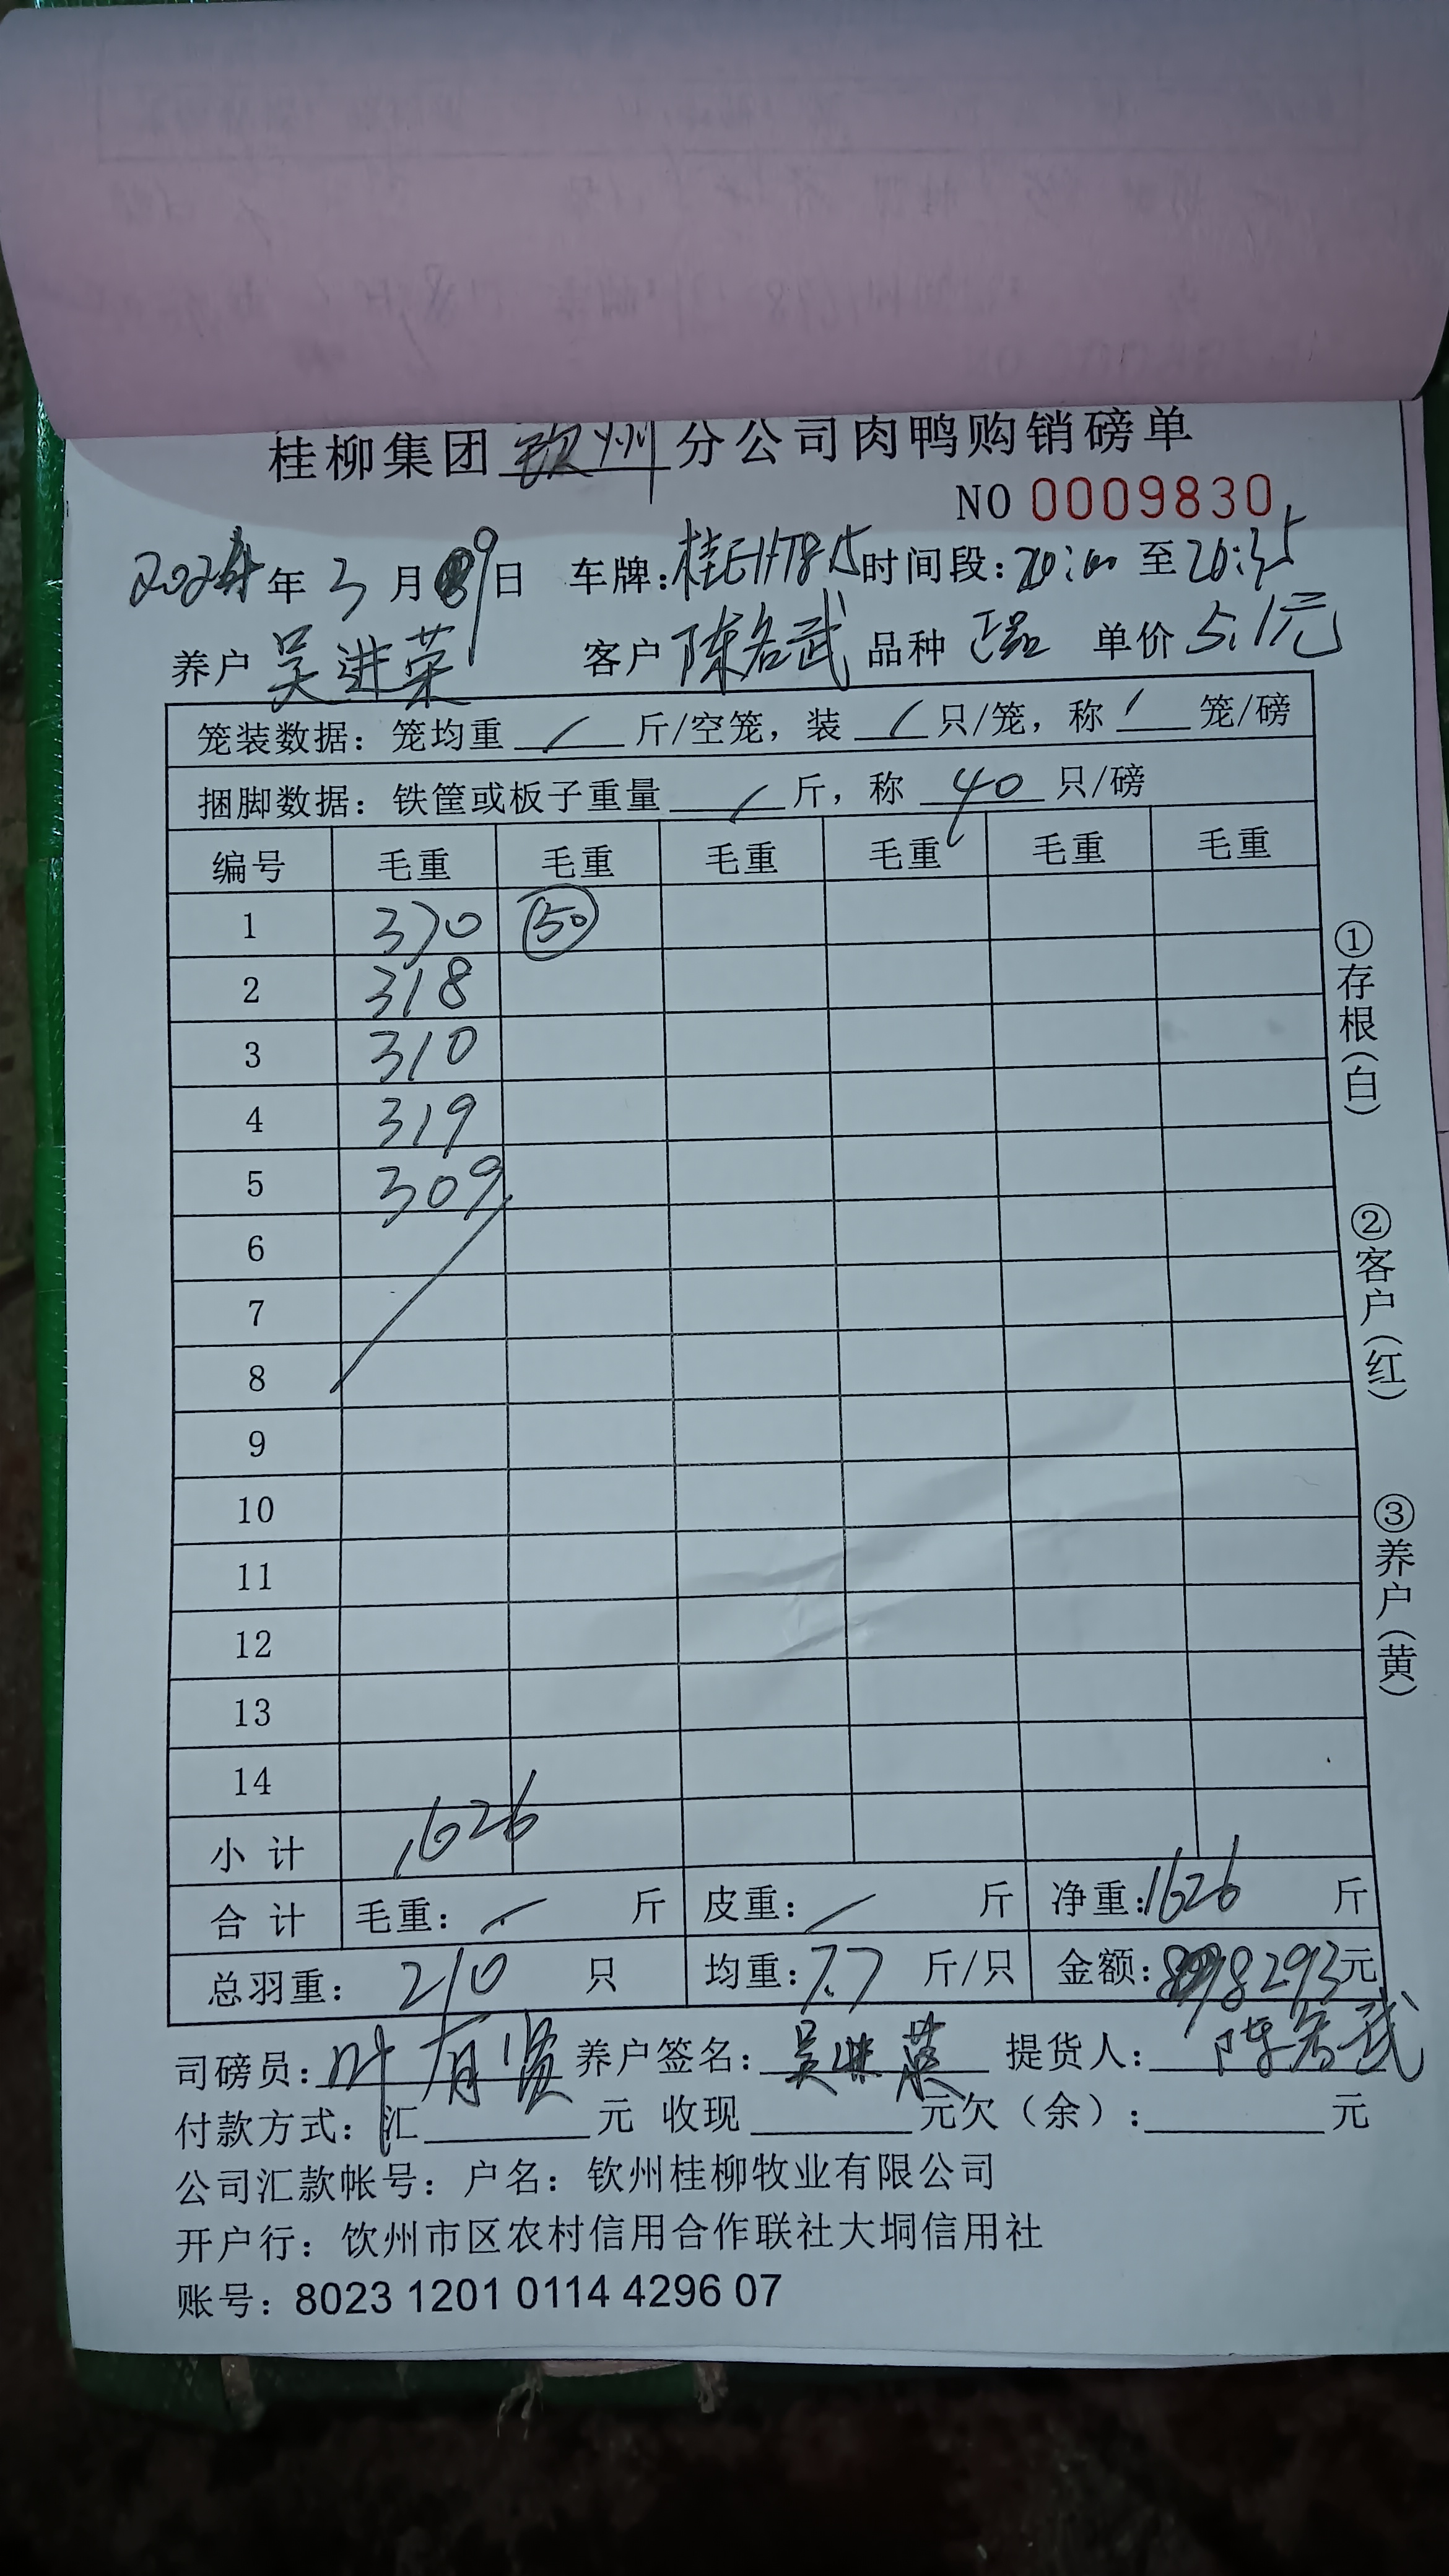 桂柳集团 钦州 分公司肉鸭购销磅单
NO 0009830
2024年 3 月 9日 车牌:桂EHT815 时间段:20:00 至 20:35
养户 吴进荣 客户 陈名武 品种 正品 单价 5.1元
笼装数据：笼均重 / 斤/空笼，装 / 只/笼，称 / 笼/磅
捆脚数据：铁筐或板子重量 / 斤，称 40 只/磅
编号 毛重 毛重 毛重 毛重 毛重 毛重
1 370 50
2 318
3 310
4 319
5 309
6
7
8
9
10
11
12
13
14
小计 1626
合计 毛重: / 斤 皮重: / 斤 净重:1626 斤
总羽重: 210 只 均重:7.7 斤/只 金额: 8293元
司磅员: 叶有贤 养户签名: 吴进荣 提货人: 陈名武
付款方式: 汇 元 收现 元欠（余）: 元
公司汇款帐号：户名：钦州桂柳牧业有限公司
开户行：钦州市区农村信用合作联社大垌信用社
账号：8023 1201 0114 4296 07
①存根(白)
②客户(红)
③养户(黄)